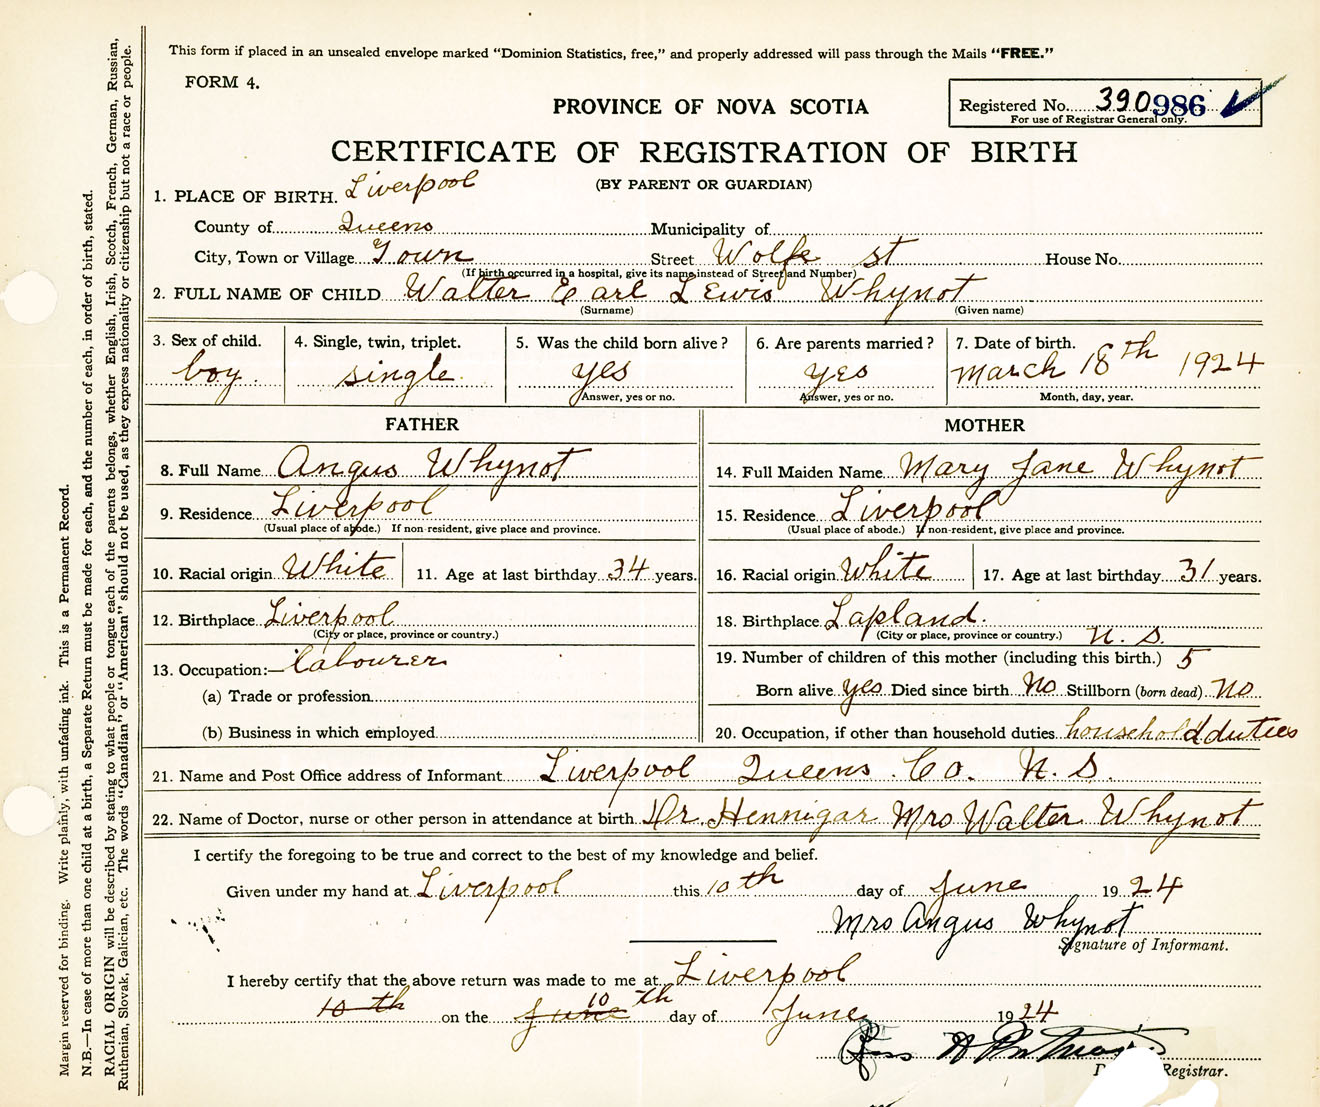 This form if placed in an unsealed envelope marked "Dominion Statistics, free," and properly addressed will pass through the Mails "FREE."
FORM 4.
PROVINCE OF NOVA SCOTIA
Registered No. 390986
For use of Registrar General only.
CERTIFICATE OF REGISTRATION OF BIRTH
(BY PARENT OR GUARDIAN)
1. PLACE OF BIRTH. Liverpool
County of Queens Municipality of
City, Town or Village Town Street Wolfe st House No.
(If birth occurred in a hospital, give its name instead of Street and Number)
2. FULL NAME OF CHILD Walter Earl Lewis Whynot
(Surname) (Given name)
3. Sex of child. 4. Single, twin, triplet. 5. Was the child born alive? 6. Are parents married? 7. Date of birth.
boy. single. yes yes March 18th 1924
Answer, yes or no. Answer, yes or no. Month, day, year.
FATHER MOTHER
8. Full Name Angus Whynot 14. Full Maiden Name Mary Jane Whynot
9. Residence Liverpool 15. Residence Liverpool
(Usual place of abode.) If non-resident, give place and province. (Usual place of abode.) If non-resident, give place and province.
10. Racial origin White 11. Age at last birthday 34 years. 16. Racial origin White 17. Age at last birthday 31 years.
12. Birthplace Liverpool 18. Birthplace Lapland. N. S.
(City or place, province or country.) (City or place, province or country.)
13. Occupation:— labourer 19. Number of children of this mother (including this birth.) 5
(a) Trade or profession Born alive yes Died since birth No Stillborn (born dead) No
(b) Business in which employed 20. Occupation, if other than household duties household duties
21. Name and Post Office address of Informant Liverpool Queens. Co. N. S.
22. Name of Doctor, nurse or other person in attendance at birth Dr. Hennigar Mrs Walter Whynot
I certify the foregoing to be true and correct to the best of my knowledge and belief.
Given under my hand at Liverpool this 10th day of June 1924
Mrs Angus Whynot
Signature of Informant.
I hereby certify that the above return was made to me at Liverpool
10th on the June 10th day of June 1924
Registrar.
Margin reserved for binding. Write plainly, with unfading ink. This is a Permanent Record.
N.B.—In case of more than one child at a birth, a Separate Return must be made for each, and the number of each, in order of birth, stated.
RACIAL ORIGIN will be described by stating to what people or tongue each of the parents belongs, whether English, Irish, Scotch, French, German, Russian,
Ruthenian, Slovak, Galician, etc. The words "Canadian" or "American" should not be used, as they express nationality or citizenship but not a race or people.